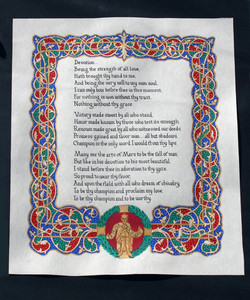 Devotion
Being the strength of all love,
Hath brought thy hand to me.
And being the very will to my own soul,
I can only bow before thee in this moment.
For nothing, is won without thy trust.
Nothing without thy grace.
Victory made sweet by all who stand.
Honor made known by those who test its strength.
Renown made great by all who witnessed our deeds.
Prowess gained and favor won all but shadows.
Champion is the only word I would from thy lips.
Many are the arts of Mars to be the fall of man.
But like in his devotion to his most beautiful.
I stand before thee in adoration to thy gaze.
So proud to wear thy favor.
And upon the field with all who dream of chivalry.
To be thy champion and proclaim my love.
To be thy champion and to be worthy.